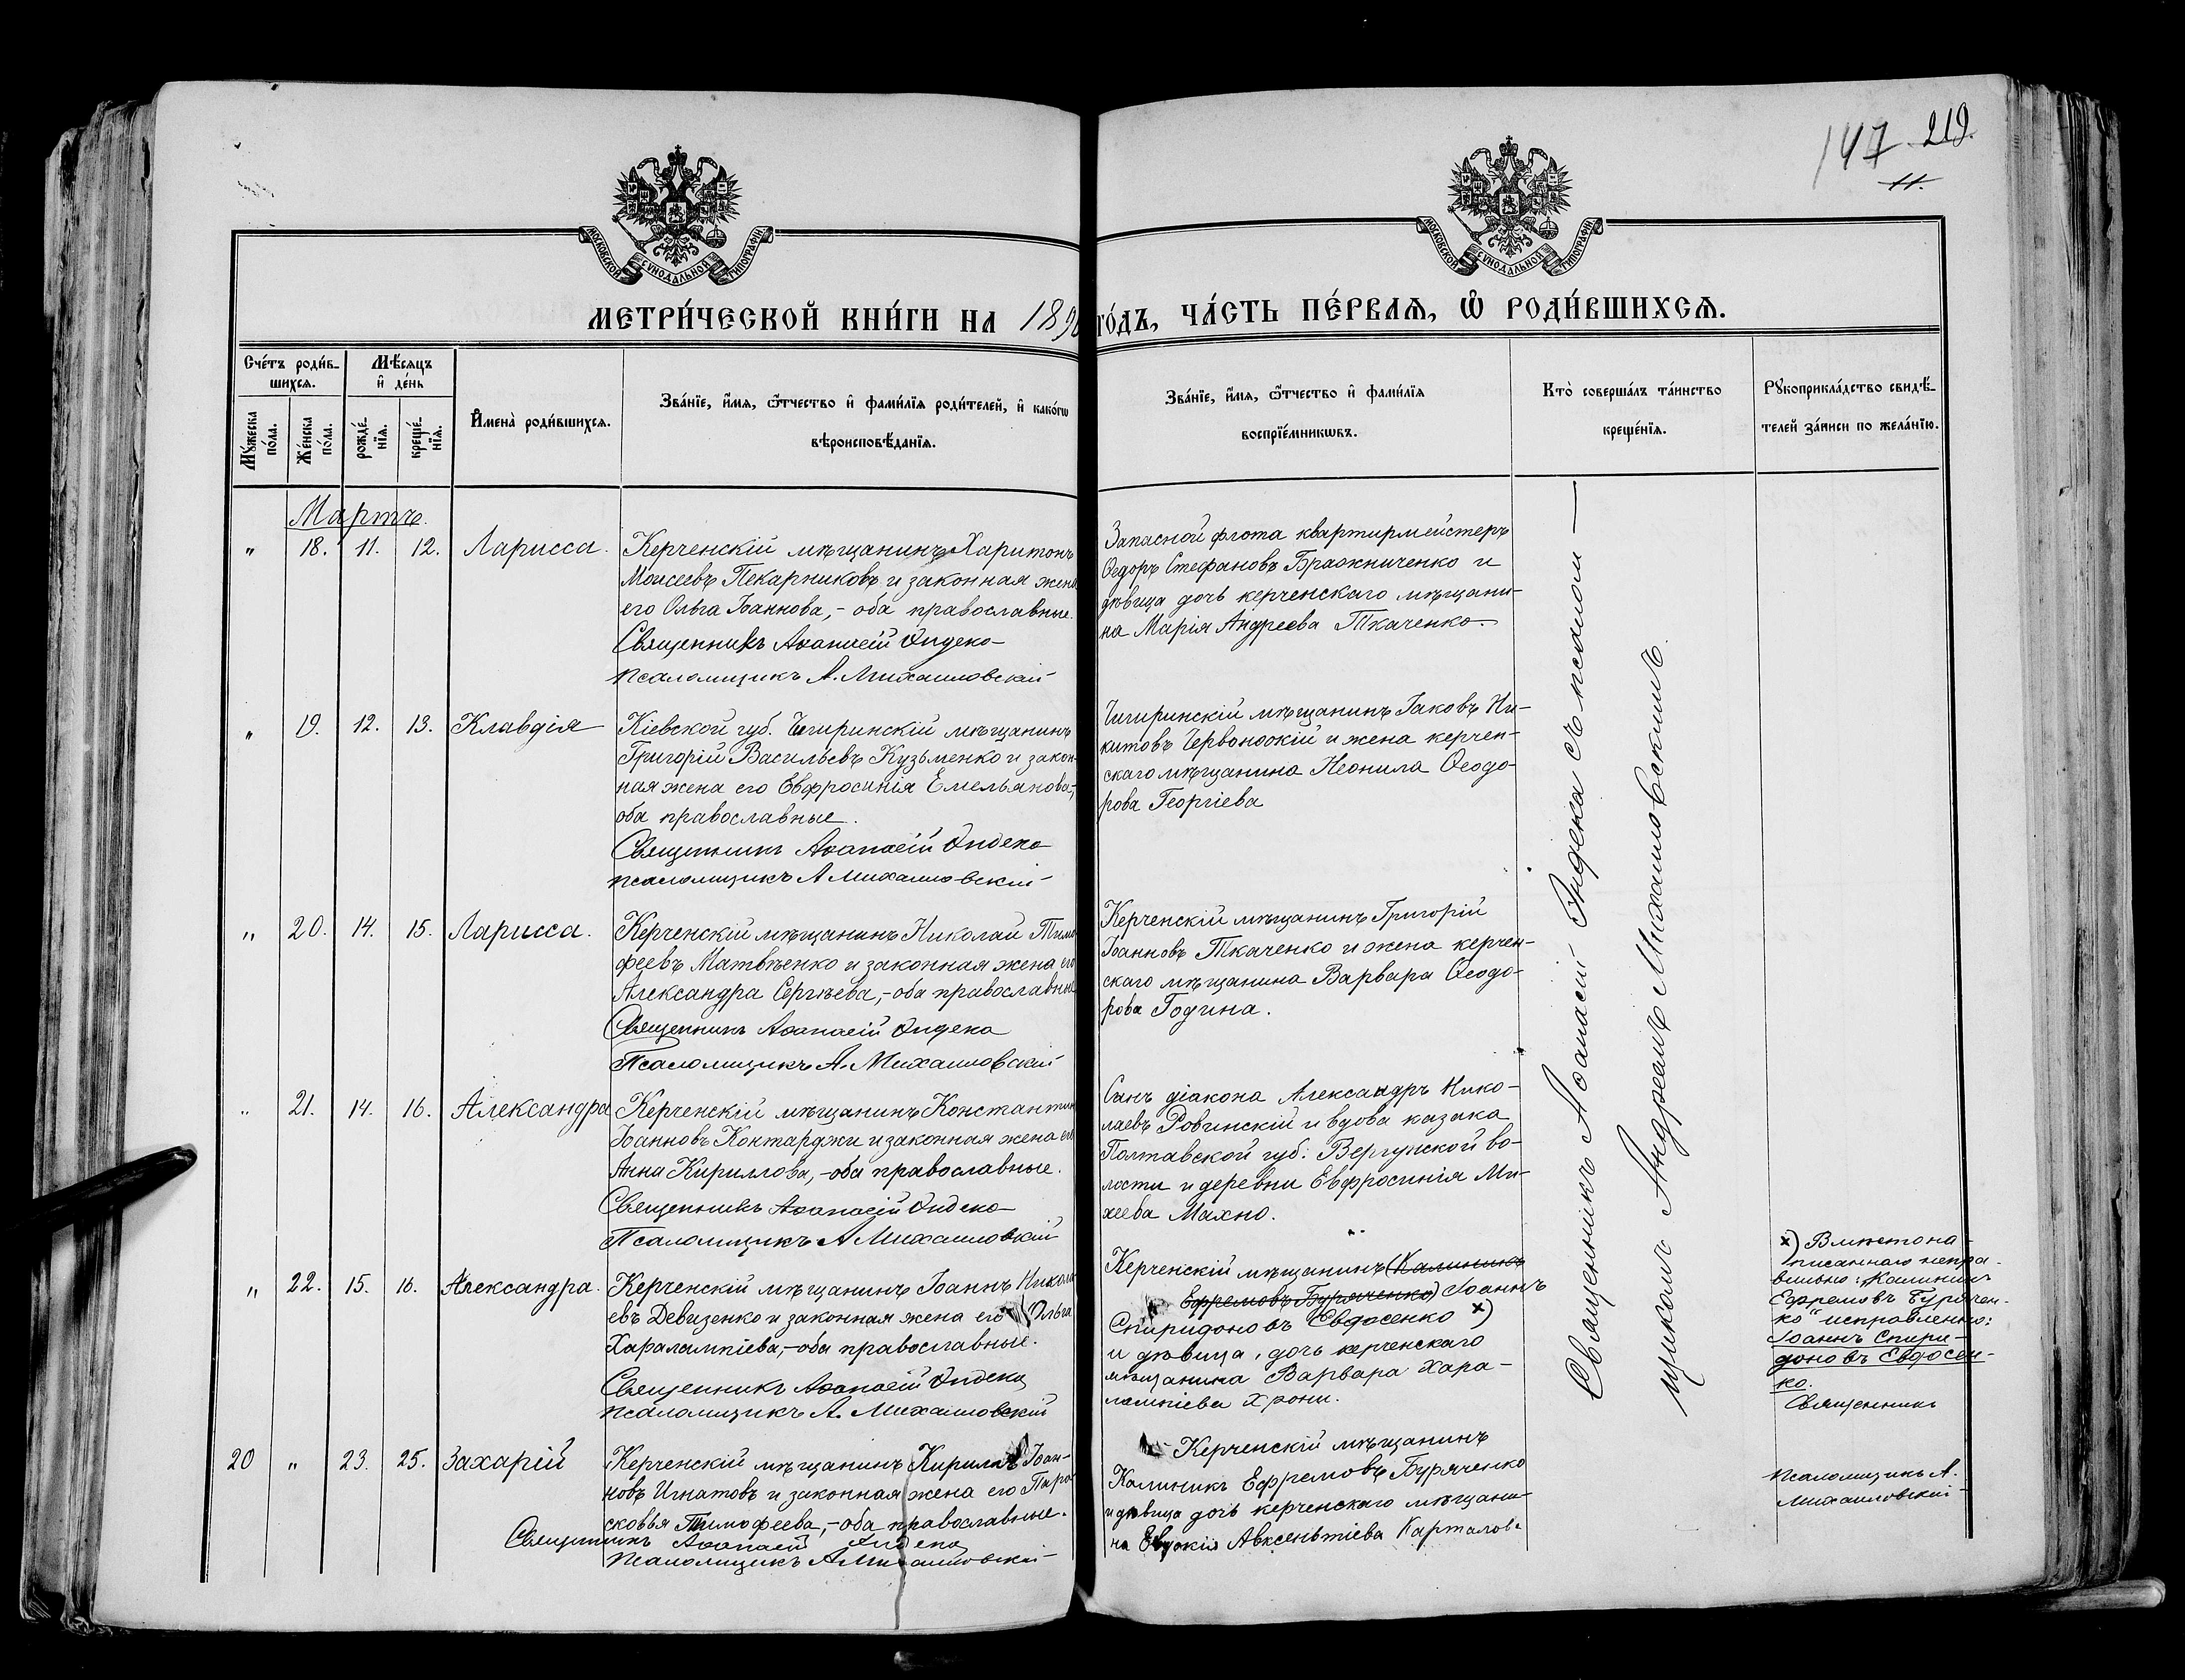 147 219.
11.
МОСКОВСКОЙ СѴНОДАЛЬНОЙ ТИПОГРАФІИ
МОСКОВСКОЙ СѴНОДАЛЬНОЙ ТИПОГРАФІИ
МЕТРИ́ЧЕСКОЙ КНИ́ГИ НА 1890 ГО́ДЪ, ЧА́СТЬ ПЕ́РВАѦ, Ѡ҆ РОДИ́ВШИХСѦ.
Сче́тъ роди́в-
шихсѧ.
Мꙋжеска по́ла.
Же́нска по́ла.
Мѣ́сѧцъ и҆ де́нь
рожде́-нїѧ.
креще́-нїѧ.
И҆мена̀ роди́вшихсѧ.
Зва́нїе, и҆́мѧ, ѻ҆́тчество и҆ фами́лїѧ роди́телей, и҆ како́гѡ
вѣроисповѣ́данїѧ.
Зва́нїе, и҆́мѧ, ѻ҆́тчество и҆ фами́лїѧ
воспрїе́мникѡвъ.
Кто̀ соверша́лъ та́инство
креще́нїѧ.
Рꙋкоприкла́дство свидѣ́-
телей за́писи по жела́нїю.
Мартъ.
" 18. 11. 12. Ларисса.
Керченскій мѣщанинъ Харитонъ
Моисеевъ Пекарниковъ и законная жена
его Ольга Іоаннова,- оба православные.
Священникъ Аѳанасій Индеко
Псаломщикъ А. Михаиловскій
Запасной флота квартирмейстеръ
Ѳеодоръ Стефановъ Бражниченко и
дѣвица дочь керченскаго мѣщани-
на Марія Андреева Ткаченко.
" 19. 12. 13. Клавдія
Кіевской губ. Чигиринскій мѣщанинъ
Григорій Васильевъ Кузьменко и закон-
ная жена его Евфросинія Емельянова,-
оба православные.
Священникъ Аѳанасій Индеко
Псаломщикъ А Михаиловскій
Чигиринскій мѣщанинъ Іаковъ Ни-
китовъ Червоноокій и жена керчен-
скаго мѣщанина Неонила Ѳеодо-
рова Георгіева
" 20. 14. 15. Ларисса.
Керченскій мѣщанинъ Николай Тимо
феевъ Матвѣенко и законная жена его
Александра Сергѣева,- оба православные
Священникъ Аѳанасій Индеко
Псаломщикъ А. Михаиловскій
Керченскій мѣщанинъ Григорій
Іоанновъ Ткаченко и жена керчен-
скаго мѣщанина Варвара Ѳеодо-
рова Година.
" 21. 14. 16. Александра
Керченскій мѣщанинъ Константинъ
Іоанновъ Контарджи и законная жена его
Анна Кириллова,- оба православные.
Священникъ Аѳанасій Индеко
Псаломщикъ А Михаиловскій
Сынъ діакона Александръ Нико-
лаевъ Ровинскій и вдова казака
Полтавской губ. Вергунской во-
лости и деревни Евфросинія Ми-
хеева Махно.
" 22. 15. 16. Александра.
Керченскій мѣщанинъ Іоаннъ Никола
евъ Девизенко и законная жена его Ольга
Харалампіева,- оба православные.
Священникъ Аѳанасій Индеко
Псаломщикъ А. Михаиловскій
Керченскій мѣщанинъ (Калиникъ
Ефремовъ Буряченко) Іоаннъ
Спиридоновъ Евдосенко х)
и дѣвица, дочь керченскаго
мѣщанина Варвара Хара-
лампіева Хрони.
х) Вмѣсто на-
писаннаго непра-
вильно: „Калиникъ
Ефремовъ Бурячен-
ко" исправлено:
Іоаннъ Спири-
доновъ Евдосен-
ко.
Священникъ
Псаломщикъ А.
Михаиловскій
20 " 23. 25. Захарій
Керченскій мѣщанинъ Кириллъ Іоан-
новъ Игнатовъ и законная жена его Пара
сковья Тимофеева,- оба православные.
Священникъ Аѳанасій Индеко
Псаломщикъ А Михаиловскій
Керченскій мѣщанинъ
Калиникъ Ефремовъ Буряченко
и дѣвица дочь керченскаго мѣщани-
на Евдокія Авксентіева Карталова
Священникъ Аѳанасій Индека съ псалом-
щикомъ Андреемъ Михаиловскимъ.